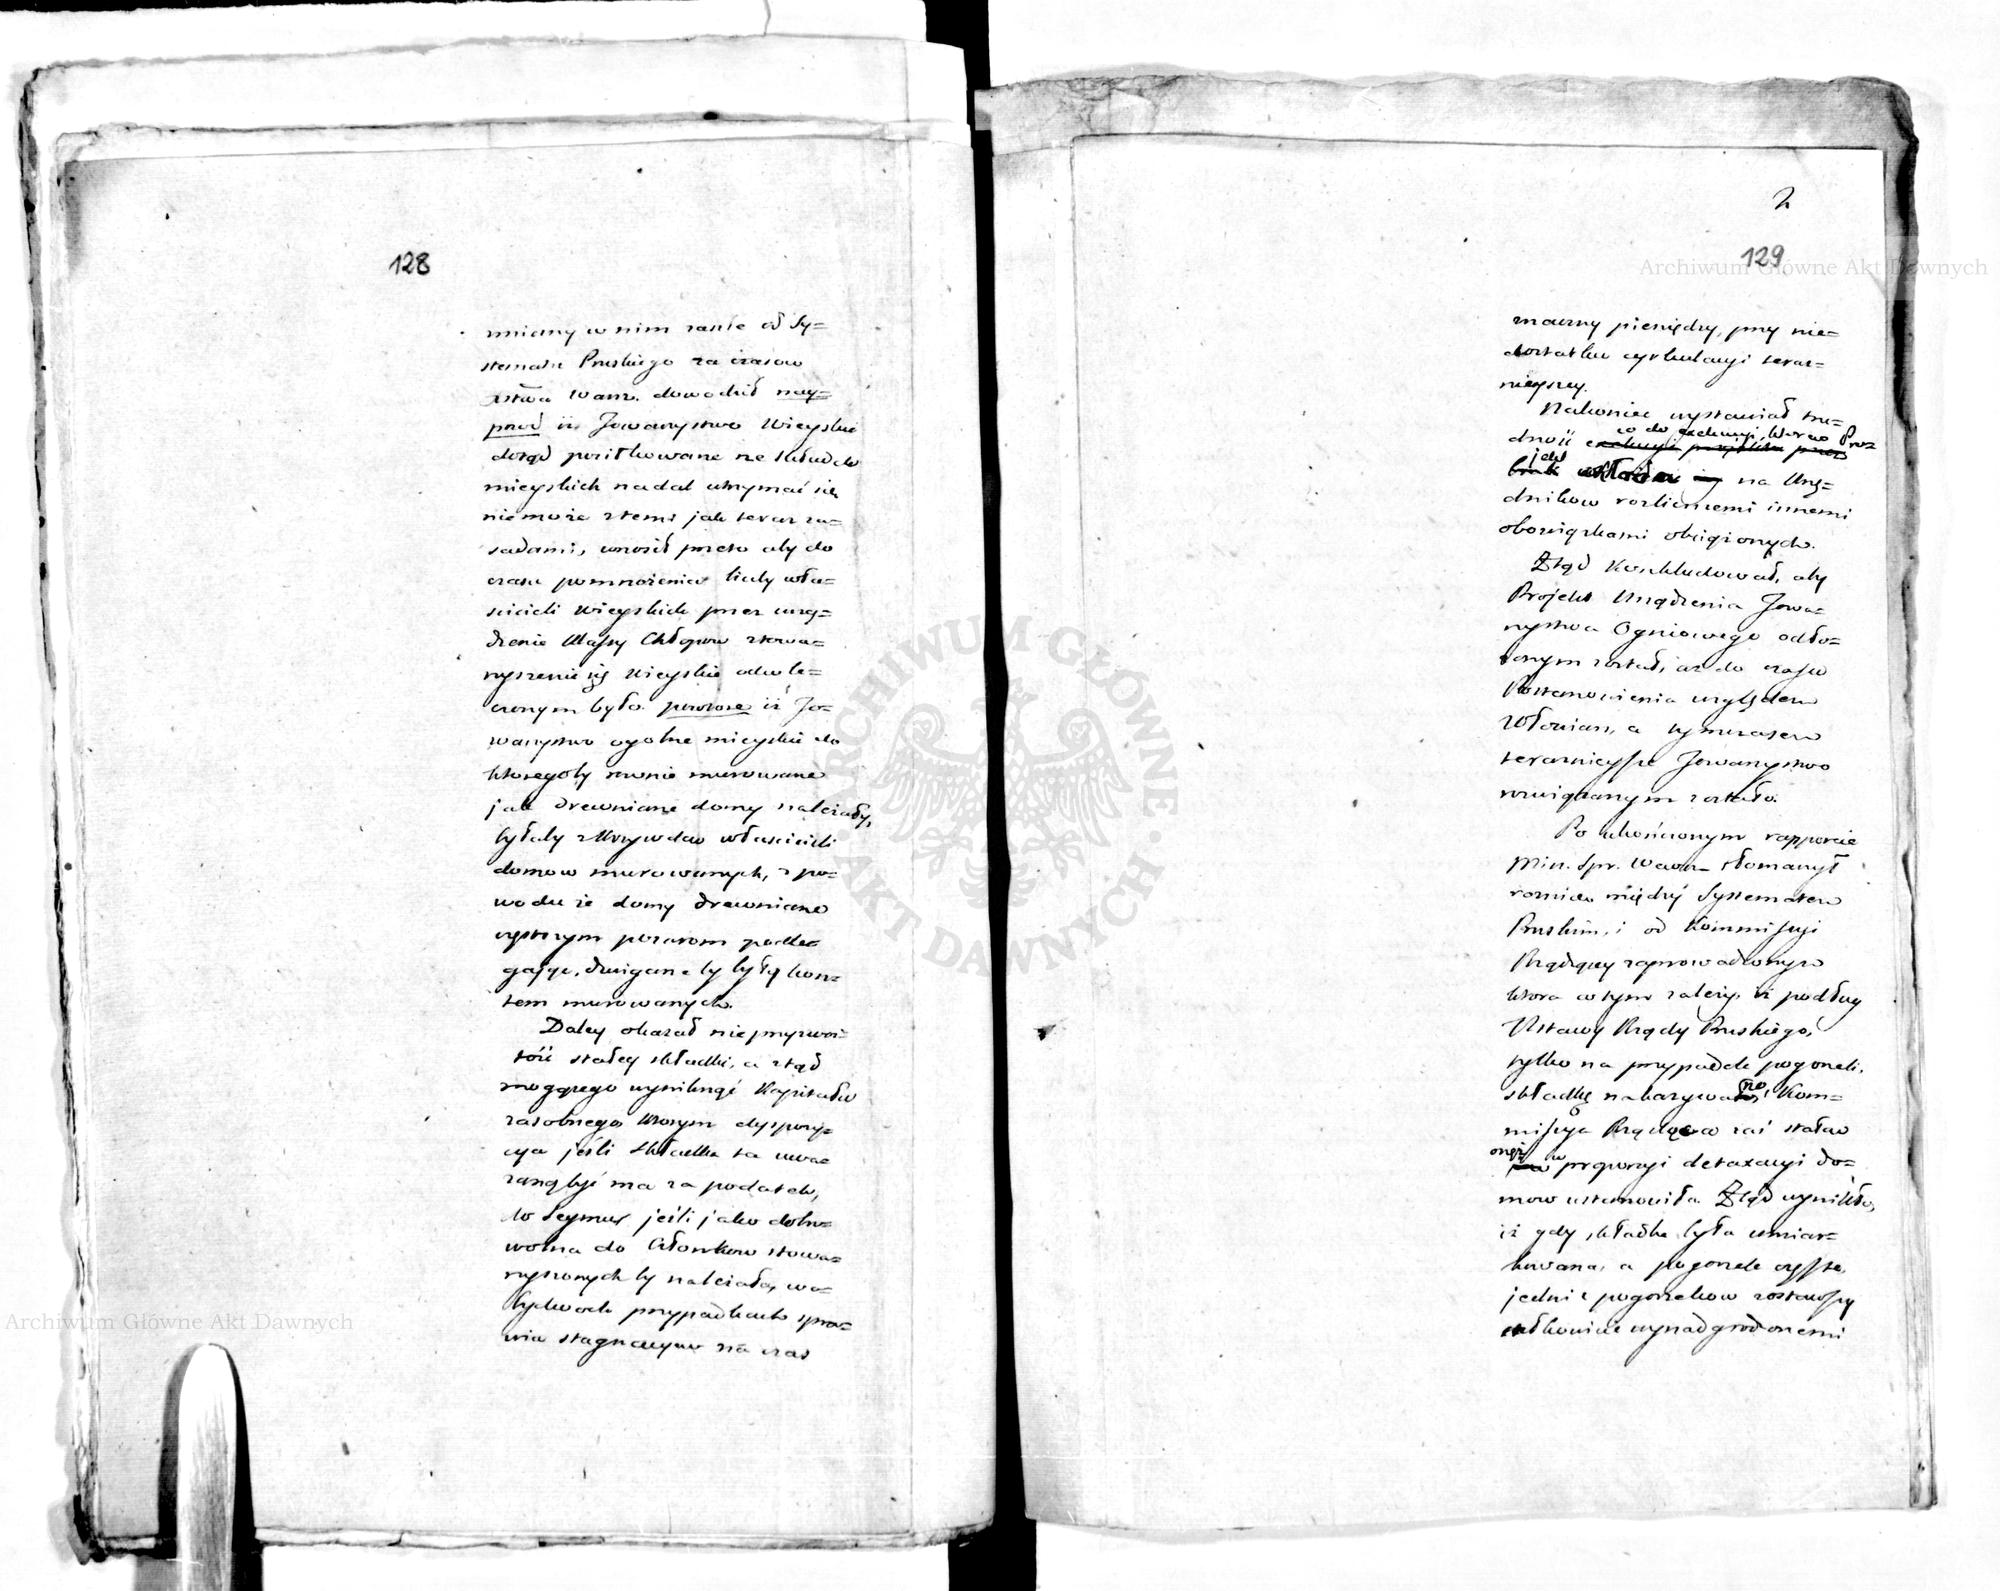 128
mniany w nim zaszłe od Sy=
stematu Pruskiego za czasow
Xstwa Warsz. dowodził nay=
przod iż Towarzystwo Wieyskie
dotąd posiłkowane ze składek
mieyskich nadal utrzymać się
niemoże z temi jak teraz za=
sadami, wnosił przeto aby do
czasu pomnożenia liczby wła=
ścicieli Wieyskich przez urzą=
dzenie Klassy Chłopow stowa=
rzyszenie się Wieyskie odwle=
czonym było. powtore iż To=
warzystwo ogolne mieyskie do
ktoregoby rownie murowane
jak drewniane domy należały,
byłoby z krzywdą właścicieli
domow murowanych, z po=
wodu że domy drewniane
częstszym pożarom podle=
gające, dzwiganeby były kosz=
tem murowanych.
Daley okazał nieprzyzwoi=
tość stałey składki, a ztąd
mogącego wyniknąć Kapitału
zasobnego, ktorym dyspozy=
cya jeśli składka ta uwa=
żaną być ma za podatek,
do Seymu, jeśli jako dobro=
wolna do Członkow stowa=
rzyszonych by należała, w o=
bydwoch przypadkach spra=
wia stagnacyą na czas
2
129
znaczny pieniędzy, przy nie=
dostatku cyrkulacyi teraz=
nieyszey.
Nakoniec wystawiał tru=
dność co do exekucyi, ktorą Pro=
jekt wkłada na Urzę=
dnikow rozlicznemi innemi
obowiązkami obciążonych.
Ztąd Konkludował, aby
Projekt Urządzenia Towa=
rzystwa Ogniowego odło=
żonym został, aż do czasu
Postanowienia względem
Włościan, a tymczasem
teraznieysze Towarzystwo
rozwiązanym zostało.
Po ukończonym rapporcie
Min. Spr. Wewn. tłomaczył
rożnicę między Systematem
Pruskim, i od Kommissyi
Rządzącey zaprowadzonym
ktora w tym zależy, iż podług
Ustawy Rządu Pruskiego,
tylko na przypadek pogorzeli,
składkę nakazywano, Kom=
missya Rządząca zaś stałą
onęż w proporcyi detaxacyi do=
mow ustanowiła. Ztąd wynikło,
iż gdy składka była umiar=
kowana, a pogorzele częste,
jedni z pogorzelcow zostawszy
całkowicie wynadgrodzonemi
Archiwum Główne Akt Dawnych
Archiwum Główne Akt Dawnych
ARCHIWUM GŁÓWNE
AKT DAWNYCH